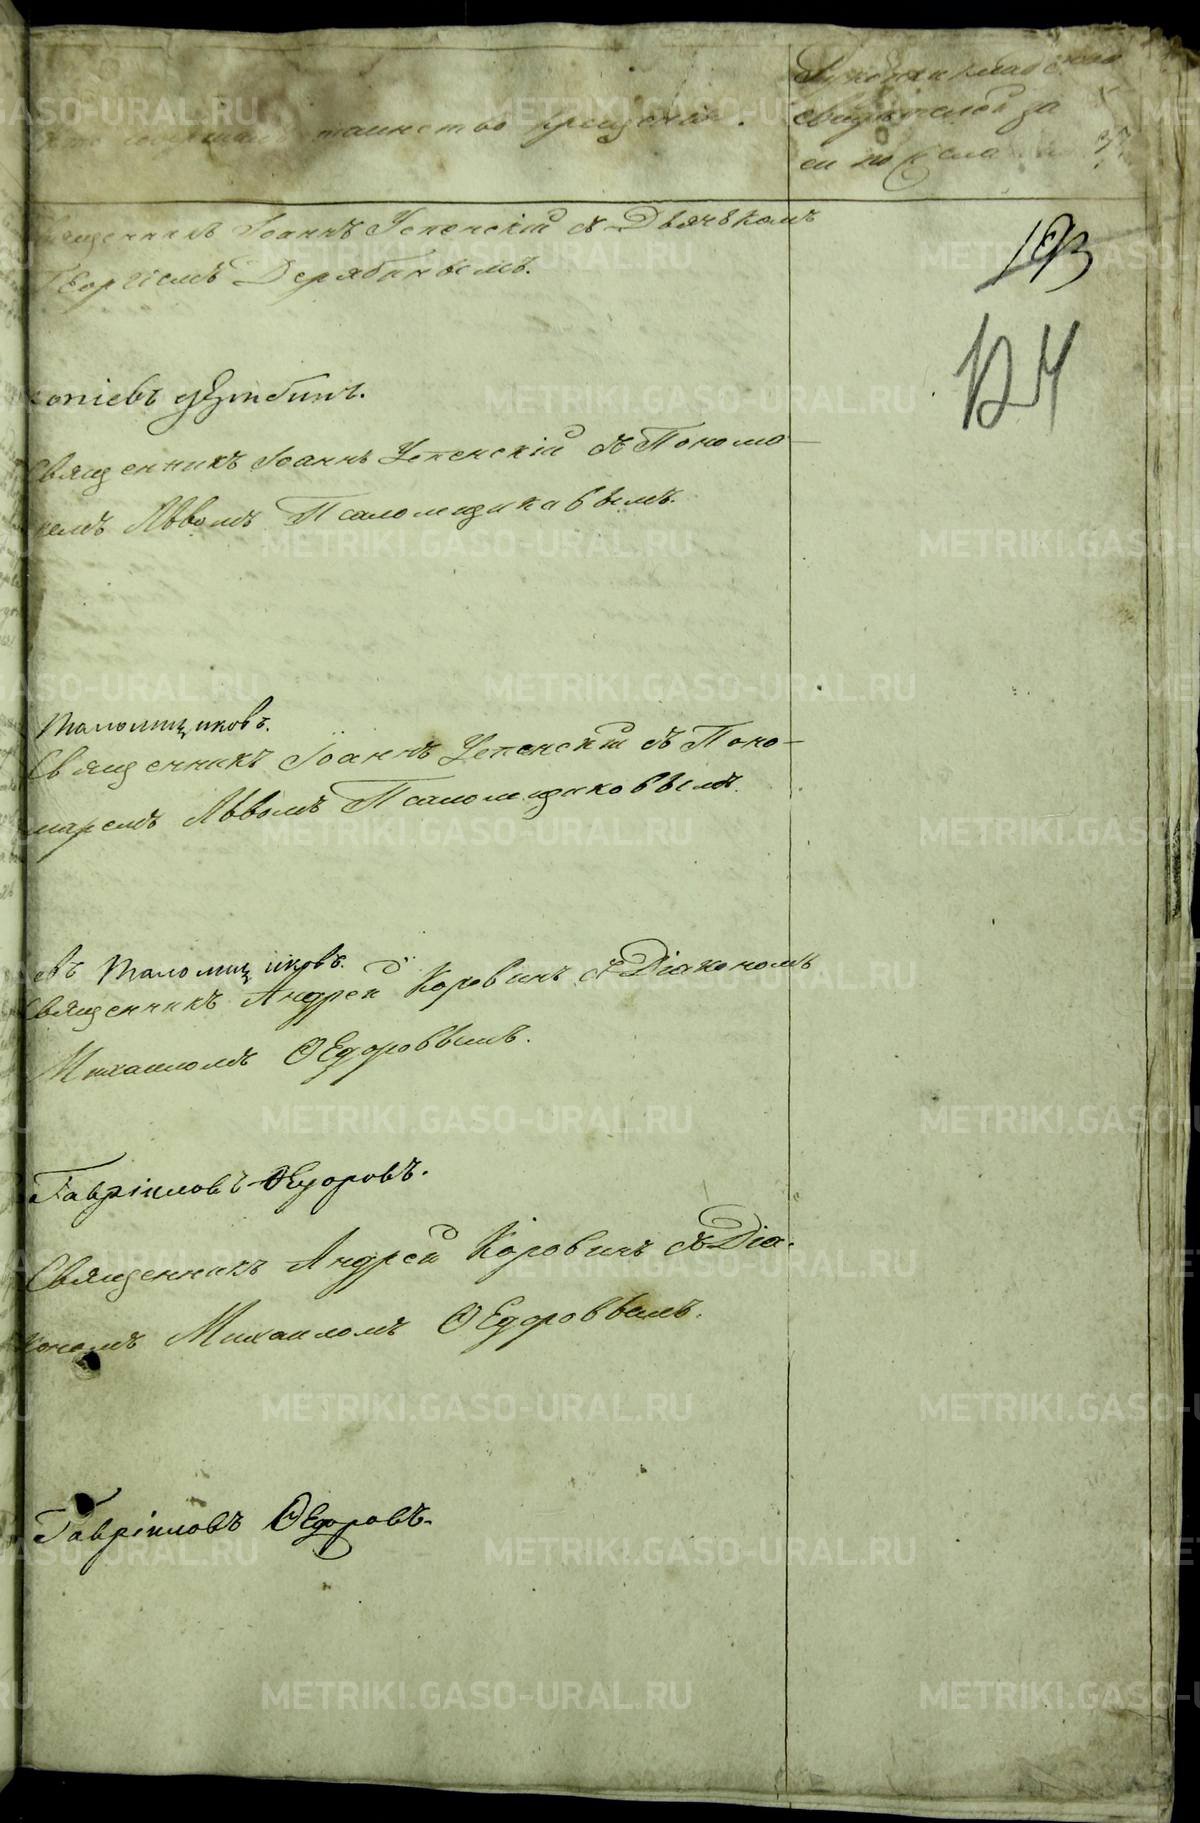 Кто совершалъ таинство крещенія.
Рукоприкладство
свидетелей за
Священникъ Іоаннъ Успенскій съ Дьячькомъ
Георгіемъ Дерябинымъ.
193
124
Священникъ Іоаннъ Успенскій съ Понома-
ремъ Львомъ Псаломщиковымъ.
Священникъ Іоаннъ Успенскій съ Поно-
маремъ Львомъ Псаломщиковымъ.
Священникъ Андрей Коровинъ съ Діакономъ
Михаиломъ Ѳедоровымъ.
Гавріиловъ Ѳедоровъ.
Священникъ Андрей Коровинъ съ Діа-
кономъ Михаиломъ Ѳедоровымъ.
Гавріиловъ Ѳедоровъ.
METRIKI.GASO-URAL.RU